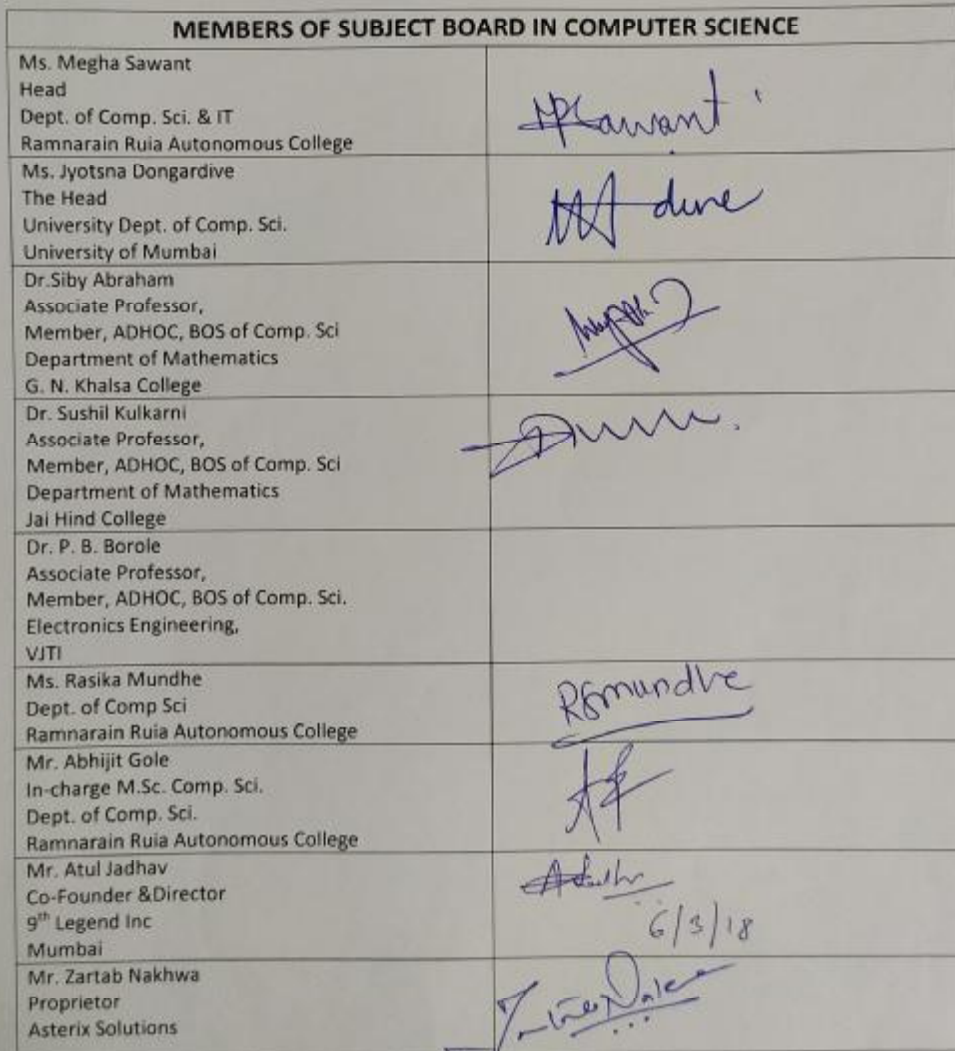 MEMBERS OF SUBJECT BOARD IN COMPUTER SCIENCE
Ms. Megha Sawant
Head
Dept. of Comp. Sci. & IT
Ramnarain Ruia Autonomous College
Ms. Jyotsna Dongardive
The Head
University Dept. of Comp. Sci.
University of Mumbai
Dr.Siby Abraham
Associate Professor,
Member, ADHOC, BOS of Comp. Sci
Department of Mathematics
G. N. Khalsa College
Dr. Sushil Kulkarni
Associate Professor,
Member, ADHOC, BOS of Comp. Sci
Department of Mathematics
Jai Hind College
Dr. P. B. Borole
Associate Professor,
Member, ADHOC, BOS of Comp. Sci.
Electronics Engineering,
VJTI
Ms. Rasika Mundhe
Dept. of Comp Sci
Ramnarain Ruia Autonomous College
RSMundhe
Mr. Abhijit Gole
In-charge M.Sc. Comp. Sci.
Dept. of Comp. Sci.
Ramnarain Ruia Autonomous College
Mr. Atul Jadhav
Co-Founder &Director
9th Legend Inc
Mumbai
6/3/18
Mr. Zartab Nakhwa
Proprietor
Asterix Solutions